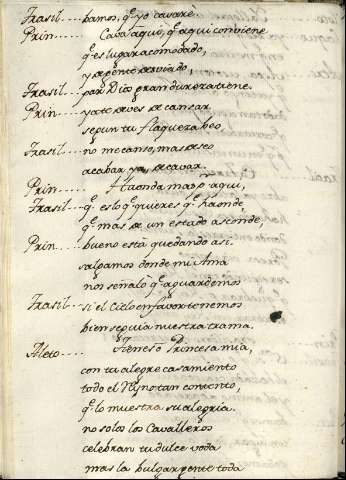 Trasil.... bamos, q̃ yo cavaré.
Prin...... Cava aquo, q̃ aqui conviene
q̃ es lugar acomodado,
y de gente desviado,
Trasil.... par Dio gran dureza tiene.
Prin...... ya te deves de cansar
segun tu flaqueza beo,
Trasil.... no me canso, mas deseo
acabar ya de cavar.
Prin...... Ahonda mas pr aqui,
Trasil.... q̃ es lo q̃ quieres q̃ haonde,
q̃ mas de un estado asconde,
Prin...... bueno está quedando asi.
salgamos donde mi Ama
nos señaló q̃ aguardemos
Trasil.... si el Cielo en favor tenemos
bien se guia nuestra trama.
Aleto..... Princesa mia,
con tu alegre casamiento
todo el Rŷno tan contento,
q̃ lo muestra su alegria.
no solos los Cavalleros
celebran tu dulce voda
mas la bulgar gente toda